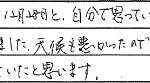 12月28日と、自分で思ってい
ました。天候も悪かったので
ていたと思います。